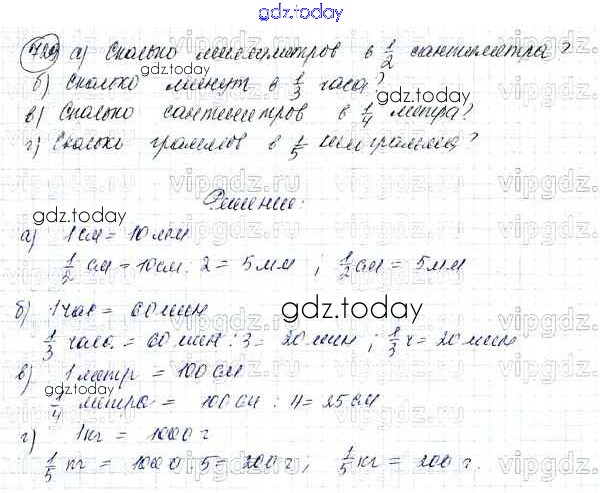 gdz.today
729 а) Сколько миллиметров в 1/2 сантиметра?
б) Сколько минут в 1/3 часа?
в) Сколько сантиметров в 1/4 метра?
г) Сколько граммов в 1/5 килограмма?
Решение:
а) 1 см = 10 мм
1/5 см = 10 см : 2 = 5 мм ; 1/2 см = 5 мм
б) 1 час = 60 мин
1/3 часа = 60 мин : 3 = 20 мин ; 1/3 ч = 20 мин
в) 1 метр = 100 см
1/4 метра = 100 см : 4 = 25 см
г) 1 кг = 1000 г
1/5 кг = 1000 : 5 = 200 г ; 1/5 кг = 200 г.
gdz.today
gdz.today
gdz.today
gdz.today
vipgdz.ru